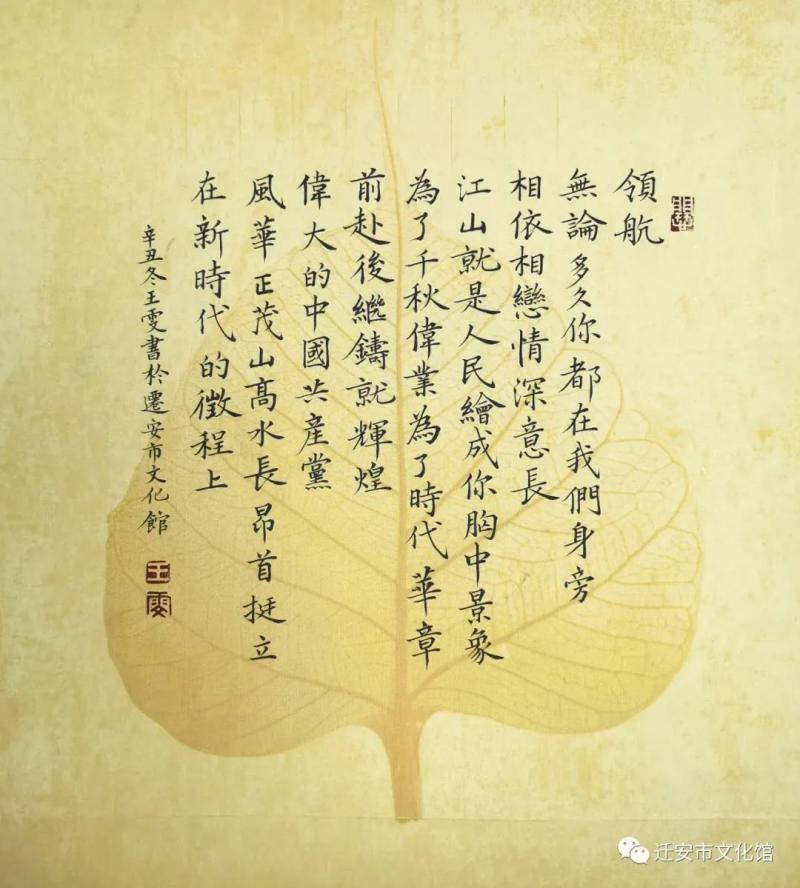 領航
無論多久你都在我們身旁
相依相戀情深意長
江山就是人民繪成你胸中景象
為了千秋偉業為了時代華章
前赴後繼鑄就輝煌
偉大的中國共産黨
風華正茂山高水長昂首挺立
在新時代的徵程上
辛丑冬王雯書於遷安市文化館
王雯
迁安市文化馆